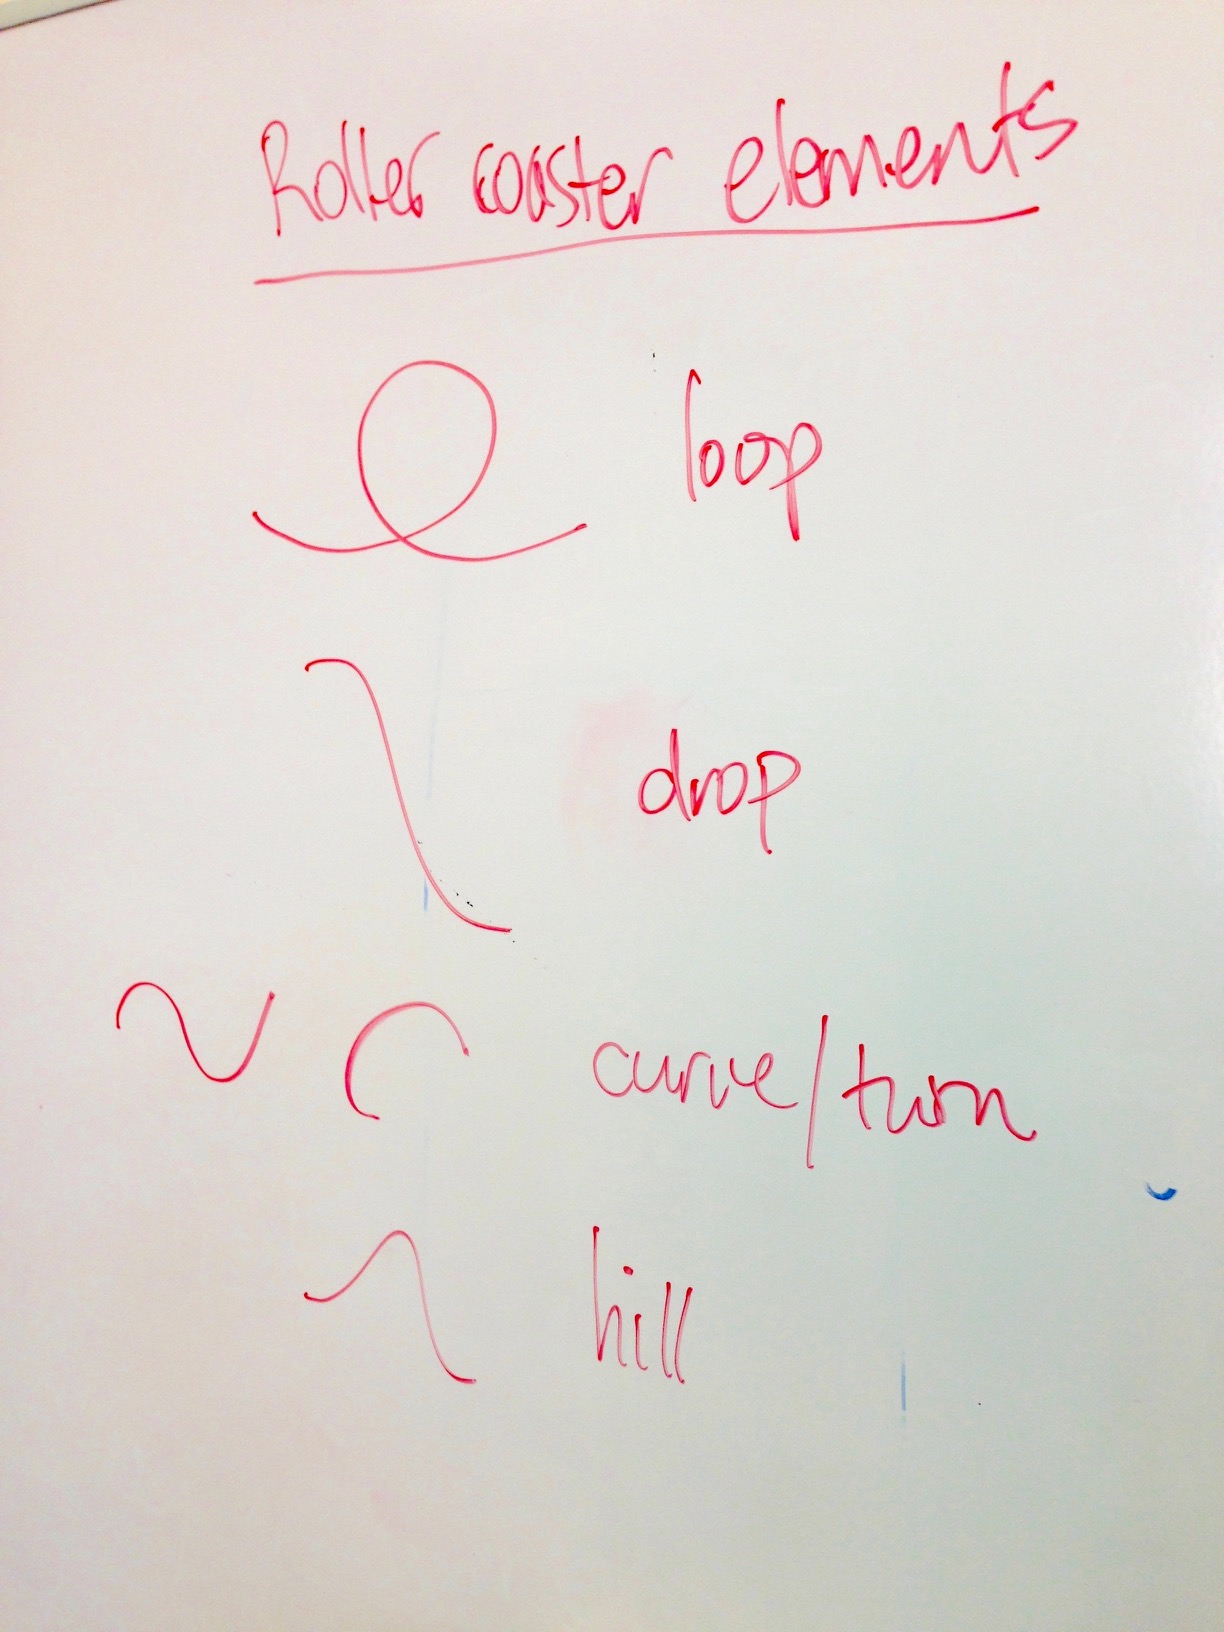 Roller coaster elements
loop
drop
curve/turn
hill